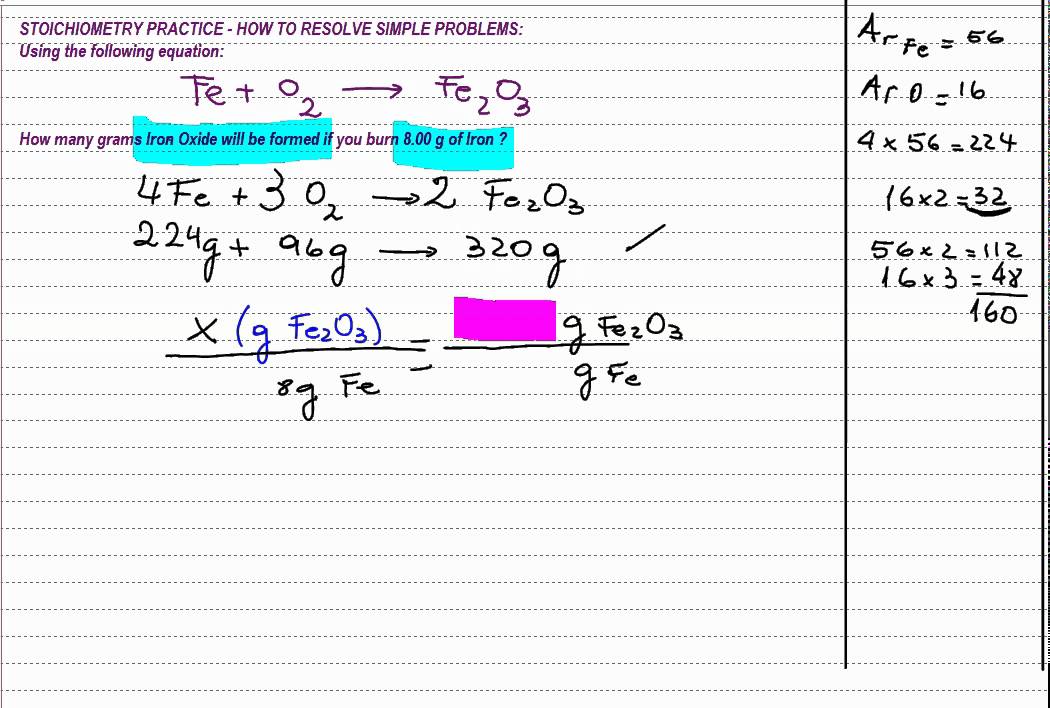 STOICHIOMETRY PRACTICE - HOW TO RESOLVE SIMPLE PROBLEMS:
Using the following equation:
Fe + O₂ → Fe₂O₃
How many grams Iron Oxide will be formed if you burn 8.00 g of Iron ?
4Fe + 3 O₂ → 2 Fe₂O₃
224g + 96g → 320g
x (g Fe₂O₃) = g Fe₂O₃
8g Fe g Fe
Ar Fe = 56
Ar O = 16
4 x 56 = 224
16 x 2 = 32
56 x 2 = 112
16 x 3 = 48
160